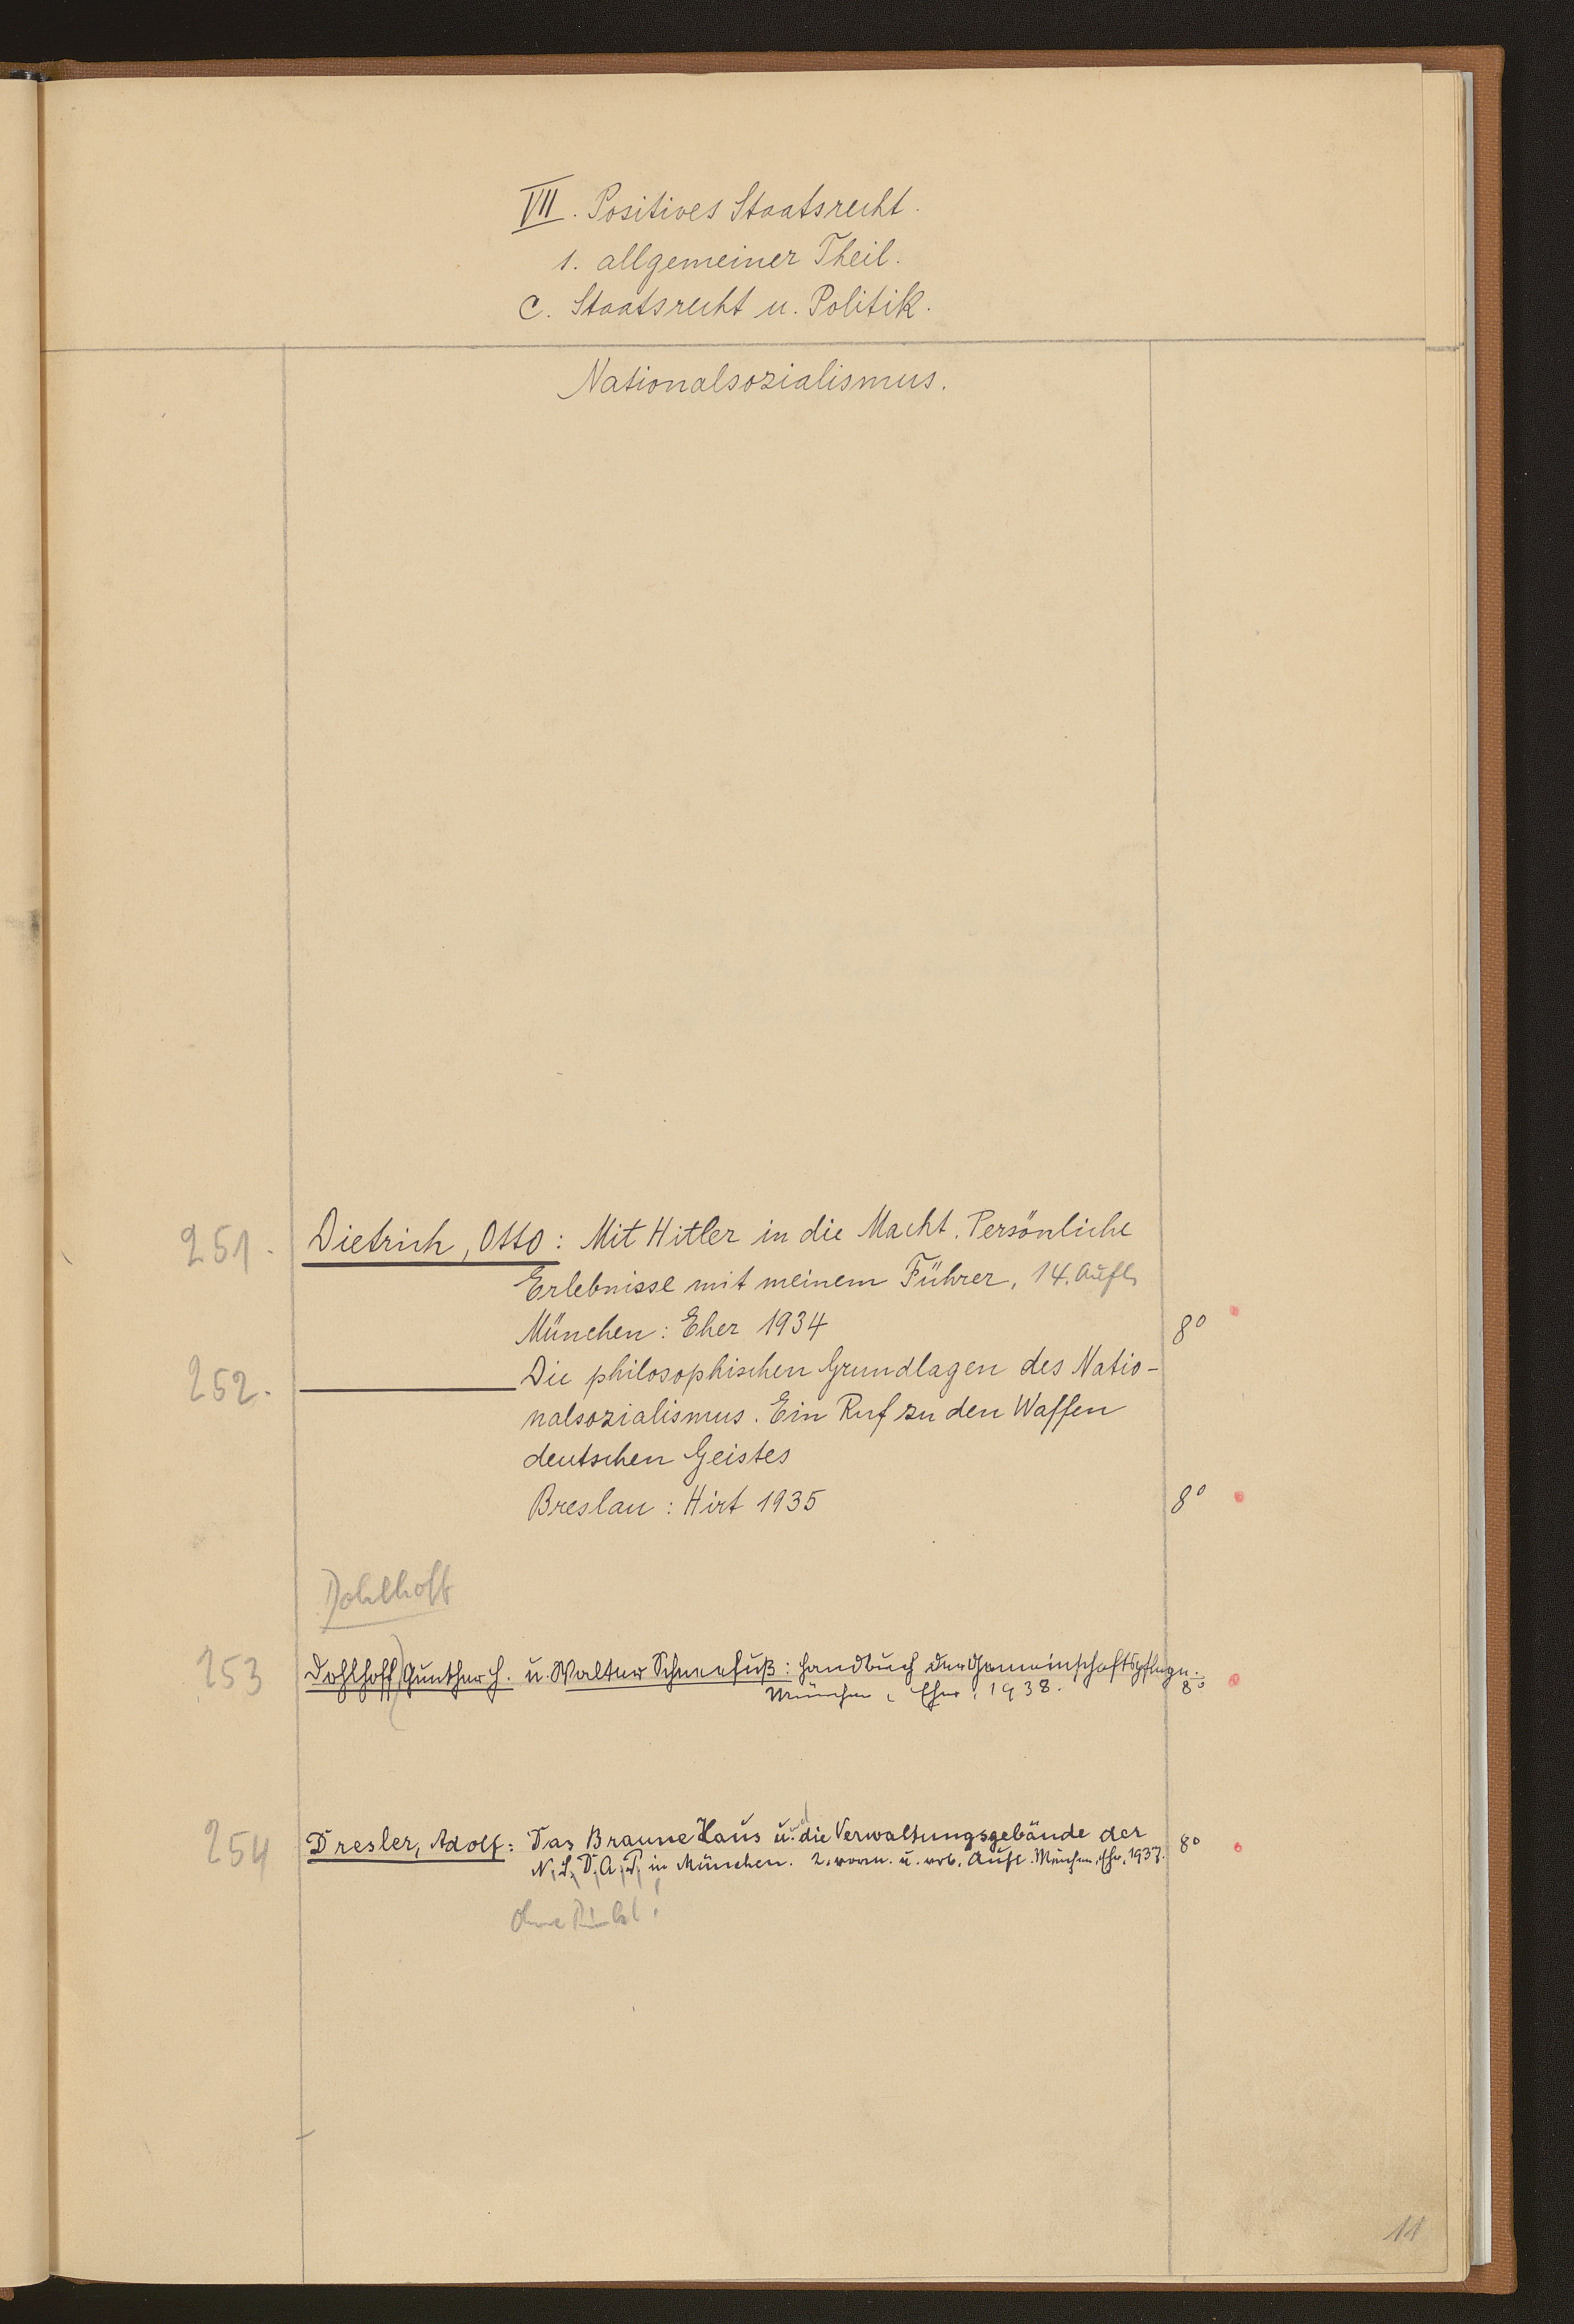 VII. Positives Staatsrecht.
1. allgemeiner Theil.
C. Staatsrecht u. Politik.
Nationalsozialismus.
251. Dietrich, Otto: Mit Hitler in die Macht. Persönliche
Erlebnisse mit meinem Führer, 14. Aufl.
München: Eher 1934 8°
252. Die philosophischen Grundlagen des Natio-
nalsozialismus. Ein Ruf zu den Waffen
deutschen Geistes
Breslau: Hirt 1935 8°
Dohlhoff
253 Dohlhoff, Gunther H. u. Walter Schneefuß: Handbuch der Gemeinschaftspflege.
München, Eher, 1938. 8°
254 Dresler, Adolf: Das Braune Haus u. die Verwaltungsgebäude der 8°
N.S.D.A.P. in München. 2. verm. u. verb. Aufl. München, Eher, 1937.
ohne
11